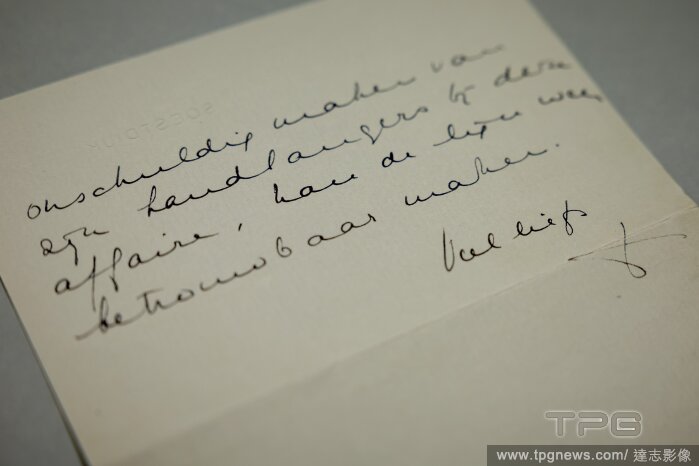 onschuldig maken van
zijn handlangers bij deze
affaire, kan de lijn weer
betrouwbaar maken.
Veel liefs
TPG
www.tpgnews.com/ 達志影像